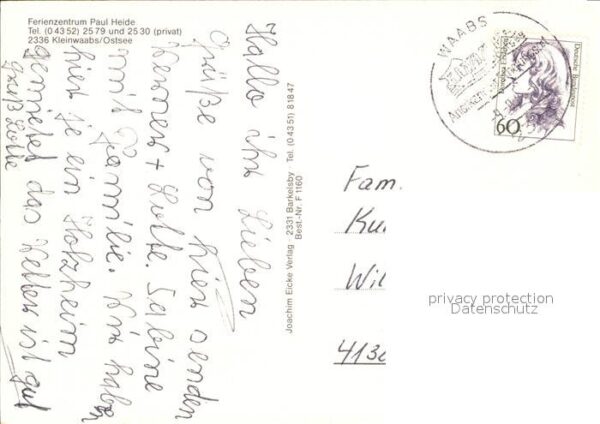 Ferienzentrum Paul Heide
Tel. (0 43 52) 25 79 und 25 30 (privat)
2336 Kleinwaabs/Ostsee
Hallo ihr Lieben
Grüße von hier senden
Werner + Lotte. Sabine
mit Familie. Wir haben
hier je ein Holzheim
gemietet das Wetter ist gut
Gruß Lotte
Joachim Eicke Verlag 2331 Barkelsby Tel. (0 43 51) 8 18 47
Best.-Nr. F 1160
WAABS
Deutsche Bundespost
60
Fam.
Ku
Wil
413
privacy protection
Datenschutz